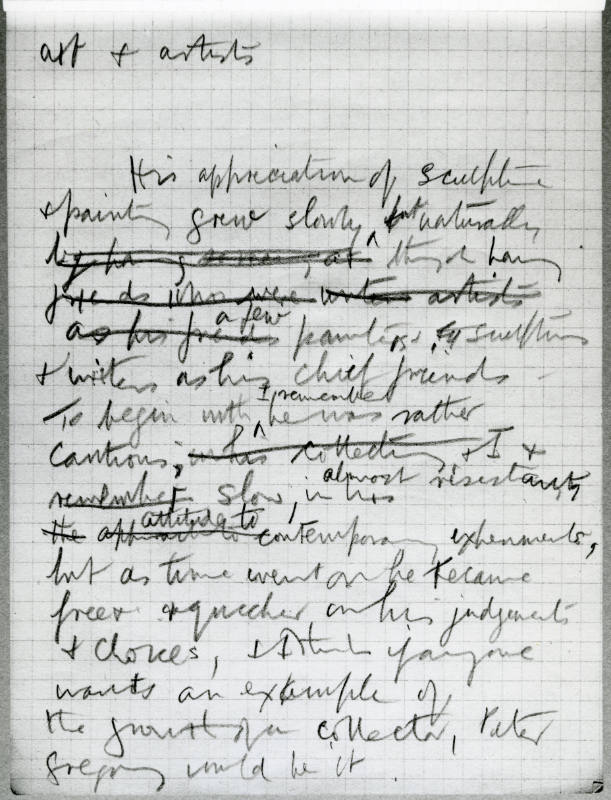 art + artists
His appreciation of sculpture
+ painting grew slowly, but naturally
by having through having
friends who were writers artists
as his friends a few painters, + sculptors
+ writers as his chief friends –
To begin with I remember he was rather
cautious, in his collecting, + I +
remember slow, in his almost resistant,
the attitude to contemporary experiments,
but as time went on he became
freer + quicker in his judgements
+ choices, + I think if anyone
wants an example of
the growth of a collector, Peter
Gregory would be it.